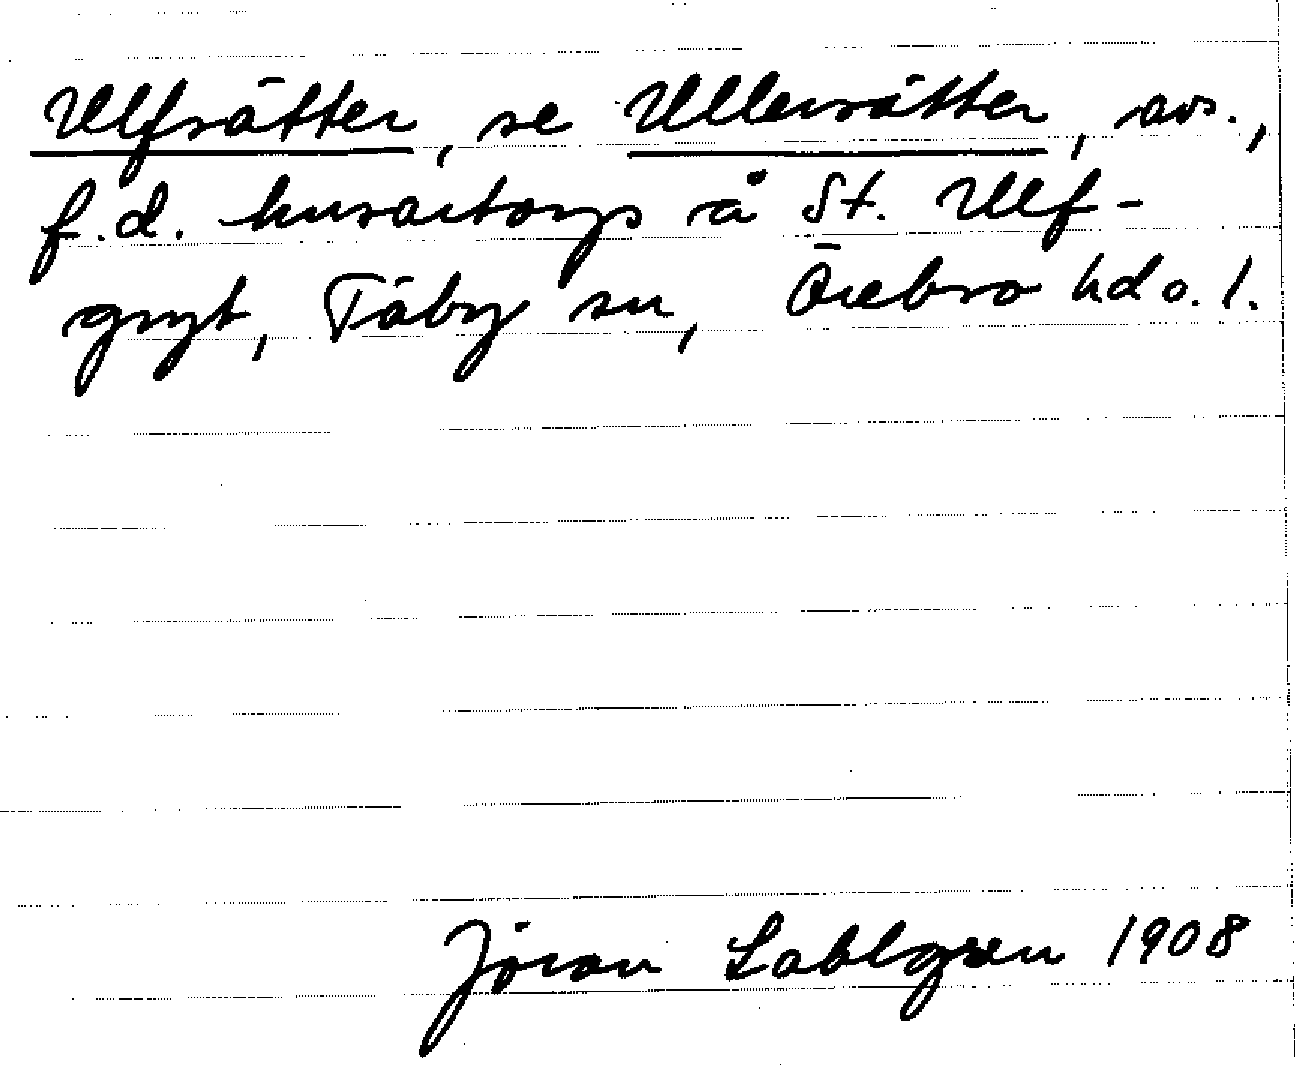 Ulfsätter, se Ullersätter, avs.,
f.d. husartorp å St. Ulf-
gryt, Täby sn, Örebro hd o. l.
Jöran Sahlgren 1908